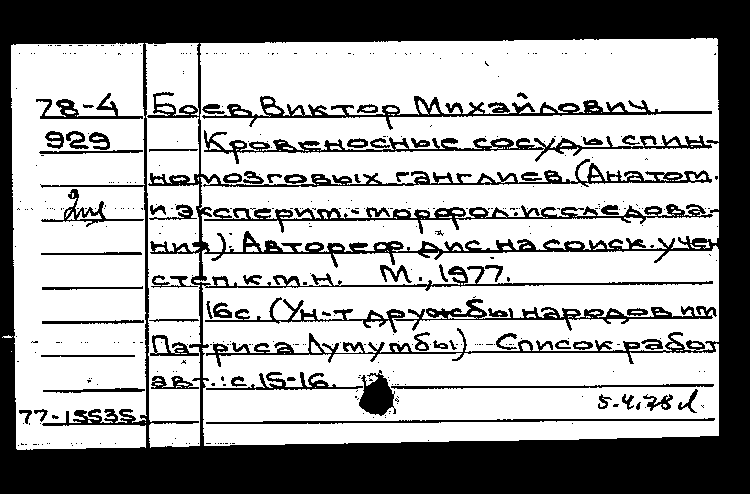 78-4 Боев, Виктор Михайлович.
929 Кровеносные сосуды спин-
номозговых ганглиев. (Анатом.
и эксперим.-морфол. исследова-
ния). Автореф. дис. на соиск. учен
степ. к.м.н. М., 1977.
16с. (Ун-т дружбы народов им
Патриса Лумумбы) Список работ
авт.: с. 15-16.
5.4.78
77-15535